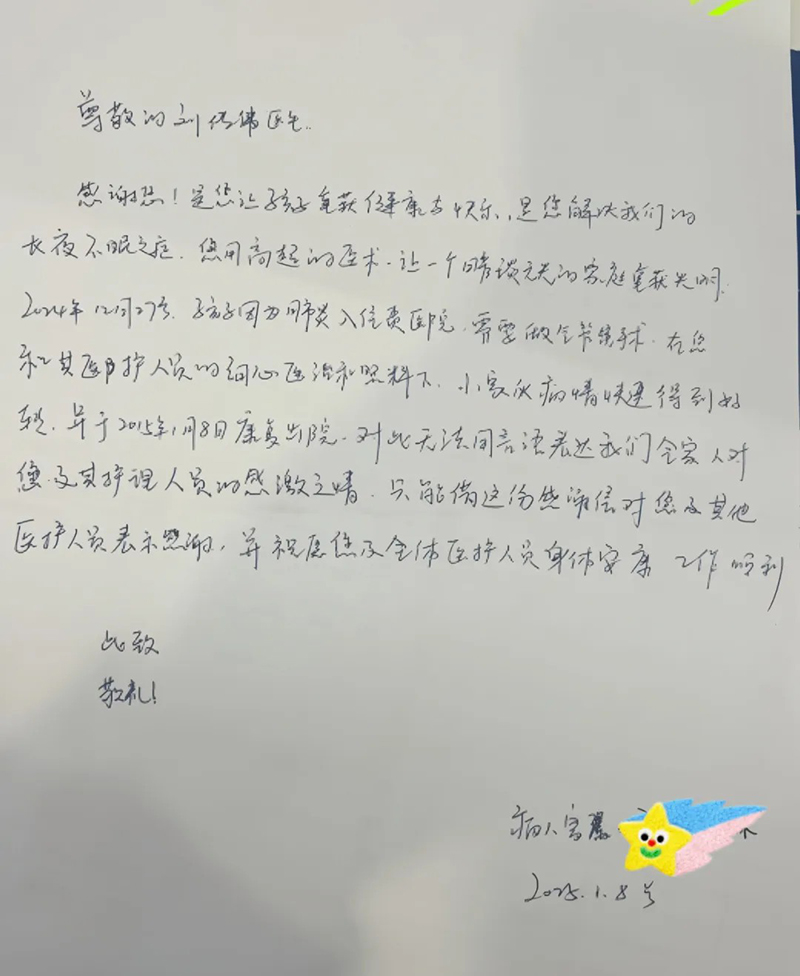 尊敬的刘传伟医生..
感谢您！是您让孩子重获健康与快乐，是您解决我们的
长夜不眠之症. 您用高超的医术. 让一个暗淡无光的家庭重获光明.
2024年12月27号. 孩子因为肺炎入住贵医院. 需要做全麻手术. 在您
和其医护人员的细心医治和照料下. 小家伙病情快速得到好
转. 并于2015年1月8日康复出院. 对此无法用言语表达我们全家人对
您及其护理人员的感激之情. 只能借这份感谢信对您及其他
医护人员表示感谢, 并祝愿您及全体医护人员身体安康 工作顺利
此致
敬礼!
病人家属
2025.1.8号